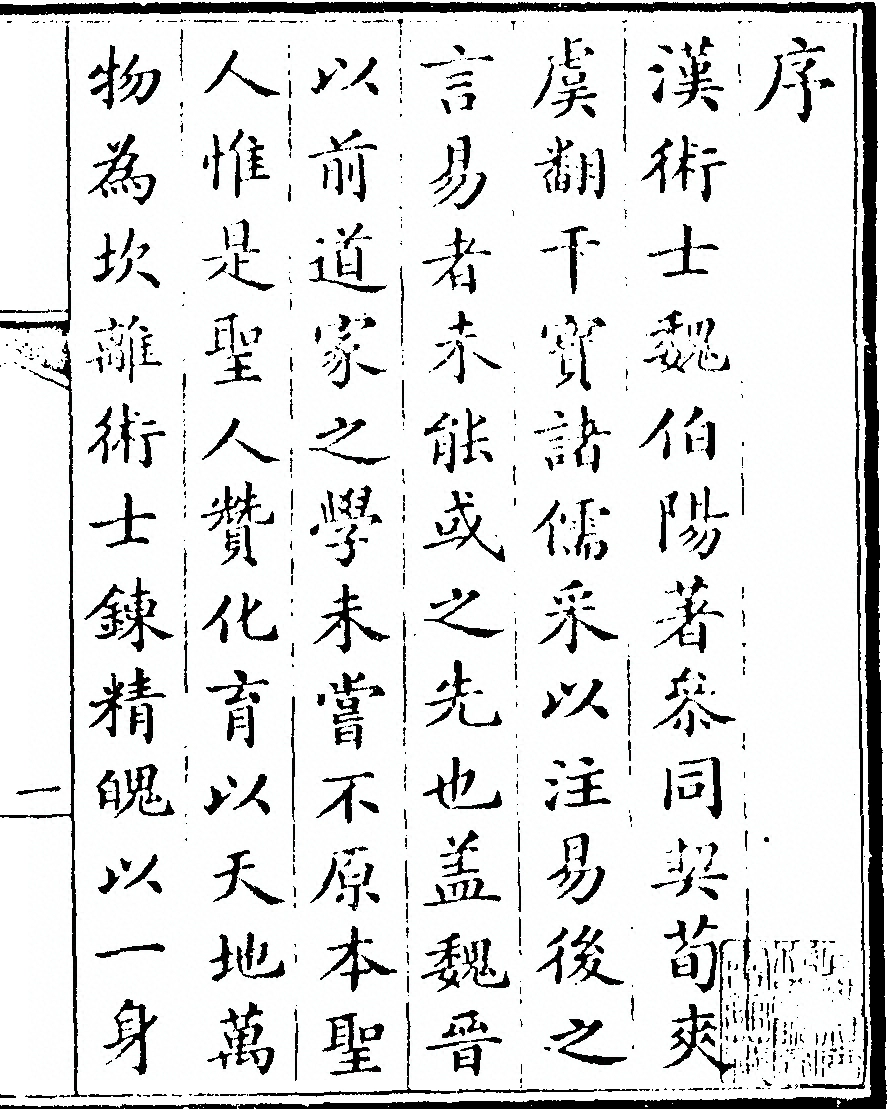 序
漢術士魏伯陽著叅同契荀爽
虞翻干寳諸儒采以注易後之
言易者未能或之先也盖魏晉
以前道家之學未嘗不原本聖
人惟是聖人贊化育以天地萬
物為坎離術士鍊精魄以一身
一